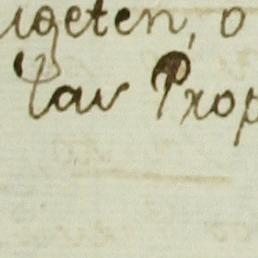 igeten, o
lav Prop